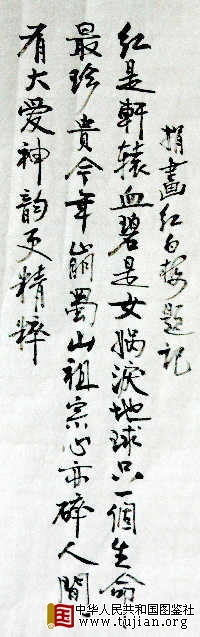 捐畫红白梅題记
红是軒辕血碧是女娲淚地球只一個生命
最珍貴今年崩蜀山祖宗心亦碎人間
有大爱神韵更精粹
国
中华人民共和国图鉴社
www.tujian.org